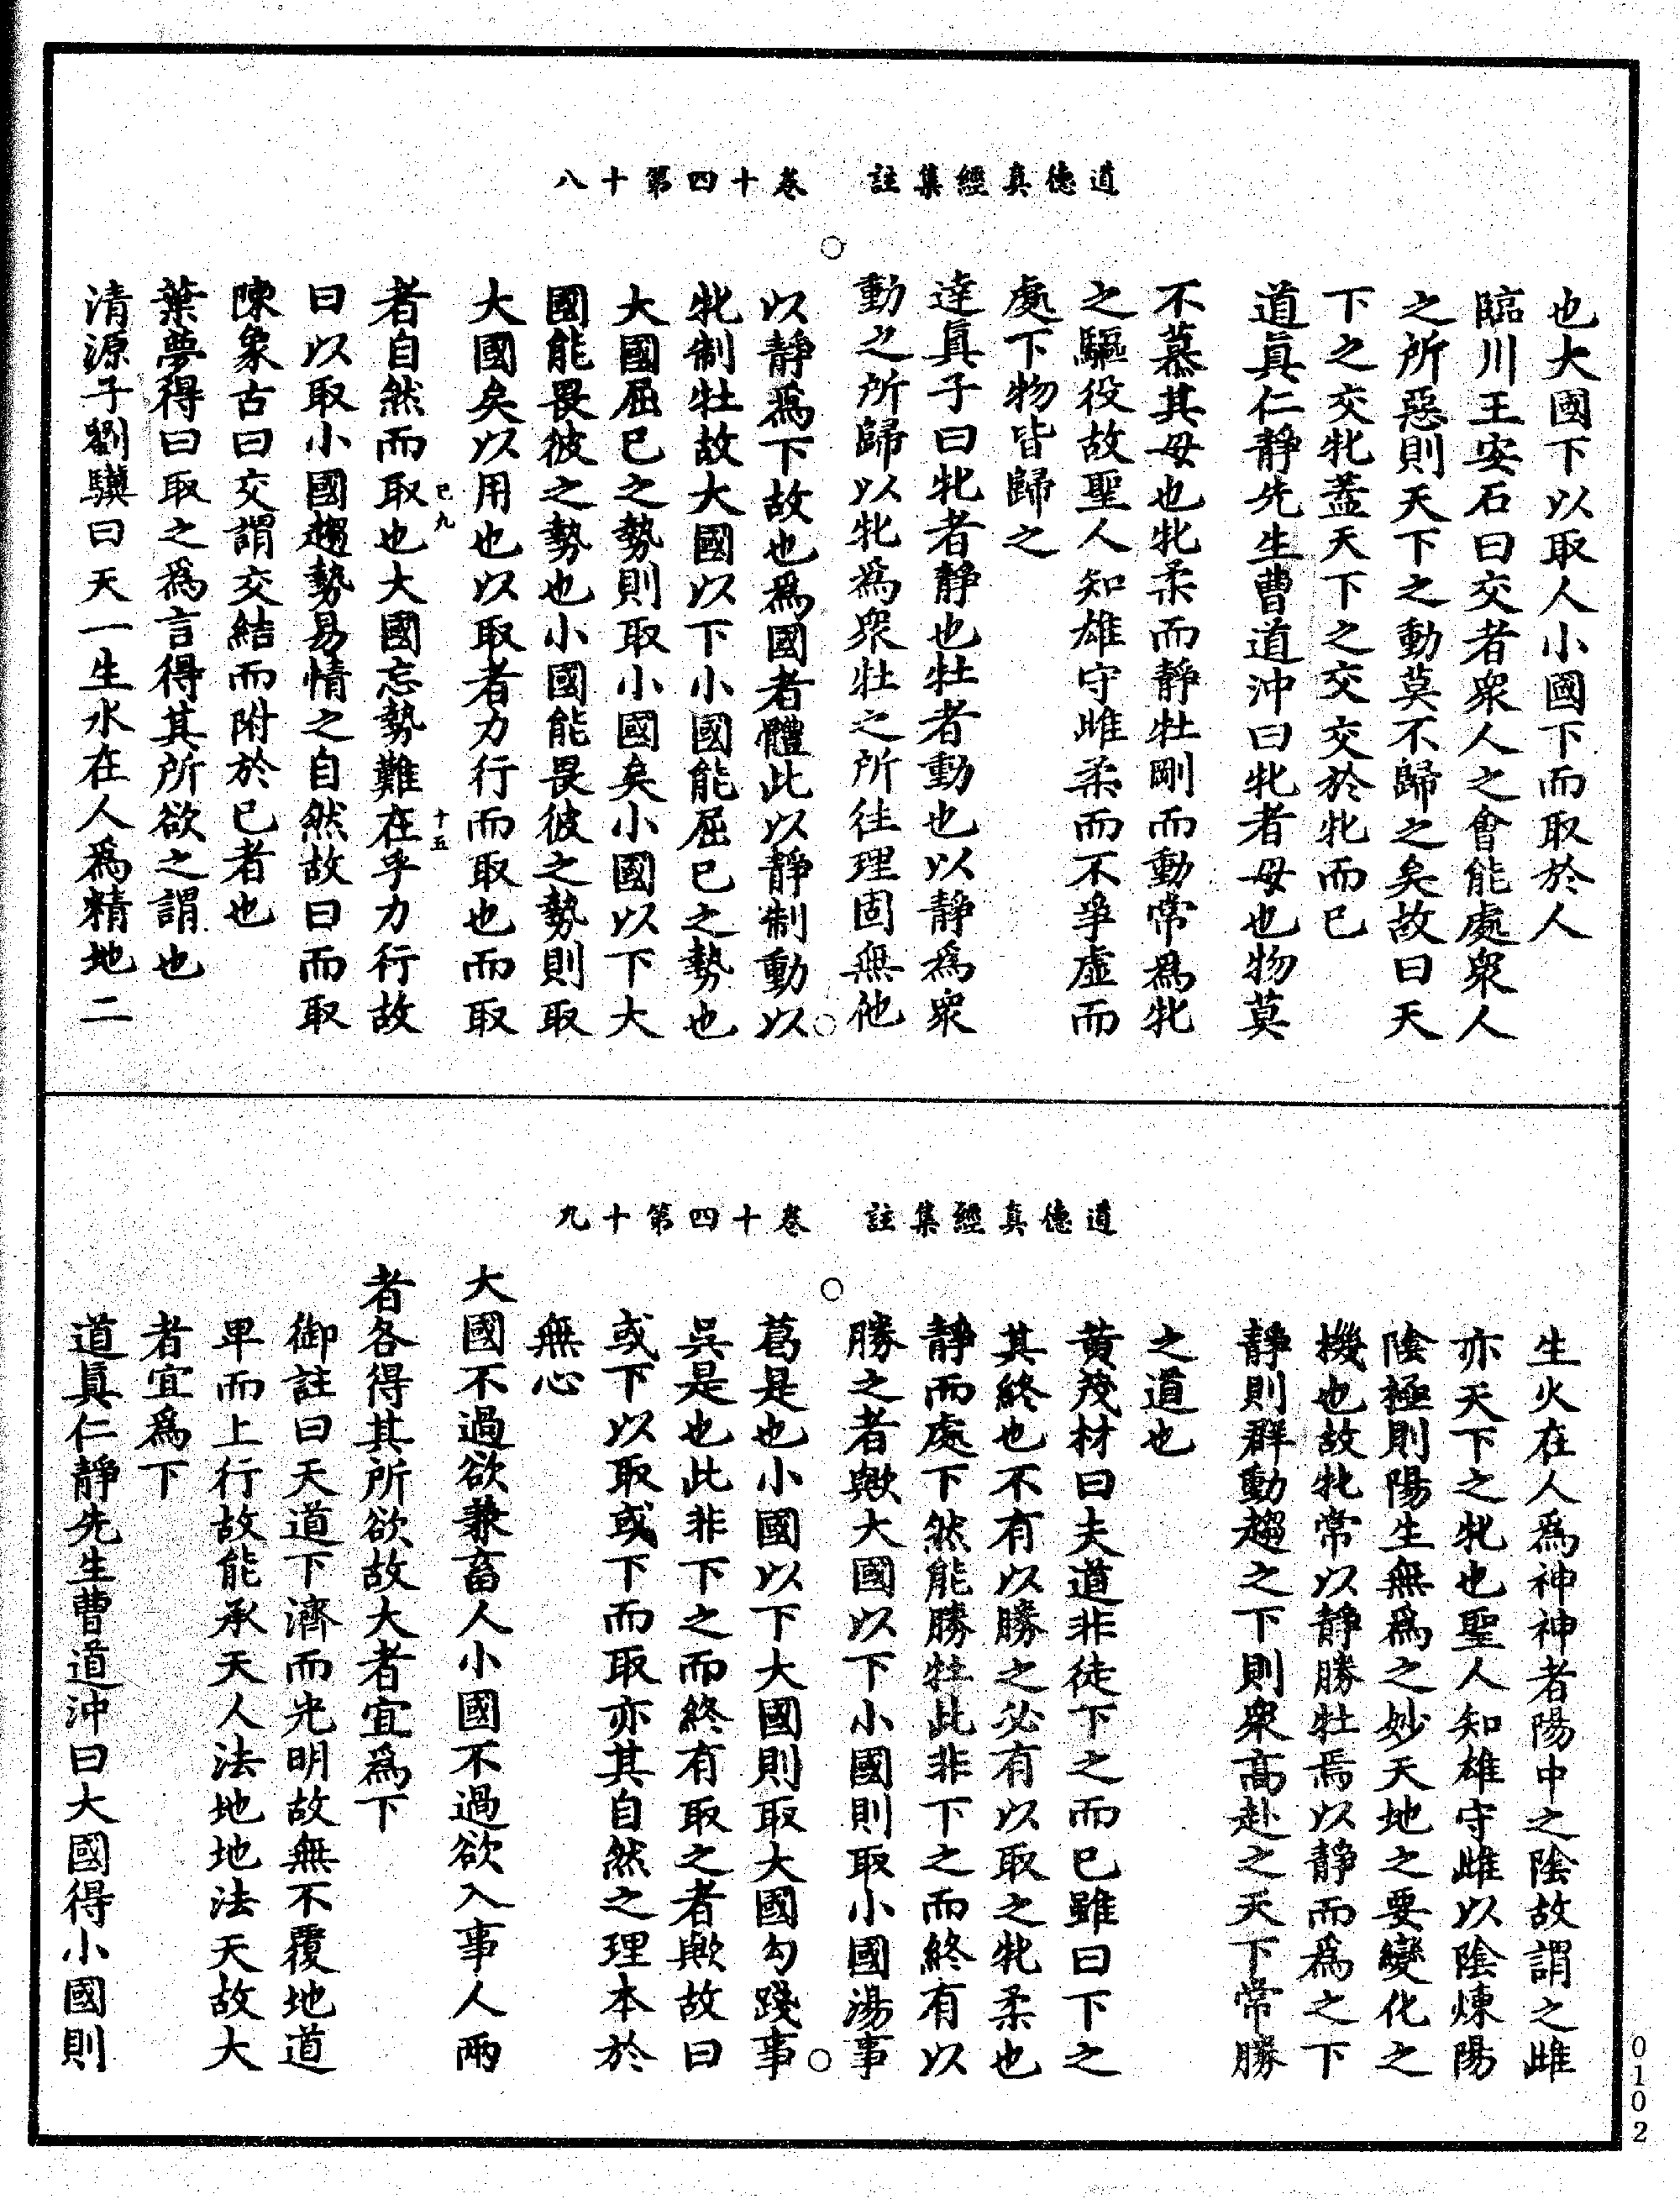 道德真經集註　卷十四第十八
也大國下以取人小國下而取於人
臨川王安石曰交者眾人之會能處眾人
之所惡則天下之動莫不歸之矣故曰天
下之交牝蓋天下之交交於牝而已
道真仁靜先生曹道沖曰牝者母也物莫
不慕其母也牝柔而靜牡剛而動常為牝
之驅役故聖人知雄守雌柔而不爭虛而
處下物皆歸之
達真子曰牝者靜也牡者動也以靜為眾
動之所歸以牝為眾牡之所往理固無他
以靜為下故也為國者體此以靜制動以
牝制牡故大國以下小國能屈已之勢也
大國屈已之勢則取小國矣小國以下大
國能畏彼之勢也小國能畏彼之勢則取
大國矣以用也以取者力行而取也而取
已九　十五
者自然而取也大國忘勢難在乎力行故
曰以取小國趨勢易情之自然故曰而取
陳象古曰交謂交結而附於已者也
葉夢得曰取之為言得其所欲之謂也
清源子劉驥曰天一生水在人為精地二
道德真經集註　卷十四第十九
生火在人為神神者陽中之陰故謂之雌
亦天下之牝也聖人知雄守雌以陰煉陽
陰極則陽生無為之妙天地之要變化之
機也故牝常以靜勝牡焉以靜而為之下
靜則群動趨之下則眾高赴之天下常勝
之道也
黃茂材曰夫道非徒下之而已雖曰下之
其終也不有以勝之必有以取之牝柔也
靜而處下然能勝牡此非下之而終有以
勝之者歟大國以下小國則取小國湯事
葛是也小國以下大國則取大國勾踐事
吳是也此非下之而終有取之者歟故曰
或下以取或下而取亦其自然之理本於
無心
大國不過欲兼畜人小國不過欲入事人兩
者各得其所欲故大者宜為下
御註曰天道下濟而光明故無不覆地道
卑而上行故能承天人法地地法天故大
者宜為下
道真仁靜先生曹道沖曰大國得小國則
0102